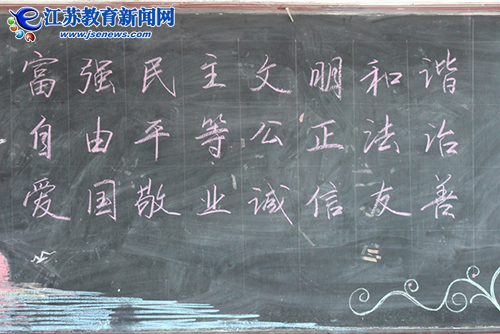 江苏教育新闻网
www.jsenews.com
富强民主文明和谐
自由平等公正法治
爱国敬业诚信友善